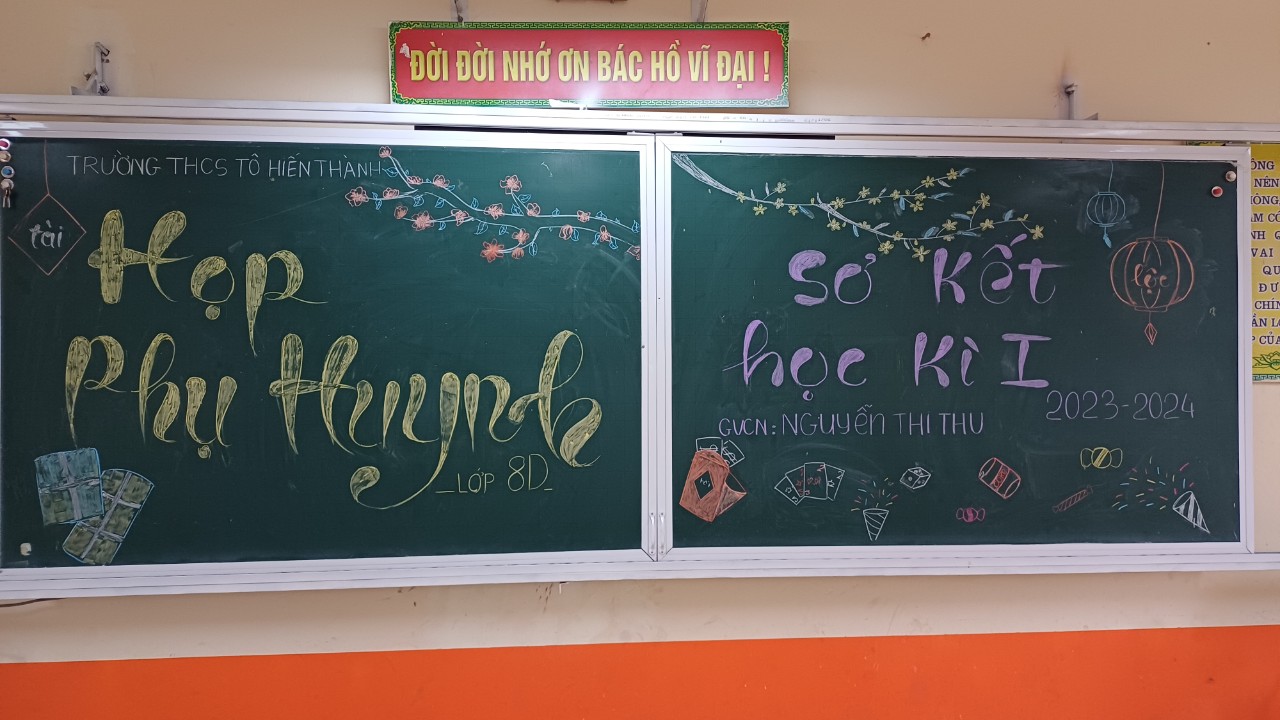 ĐỜI ĐỜI NHỚ ƠN BÁC HỒ VĨ ĐẠI !
TRƯỜNG THCS TÔ HIẾN THÀNH
tài
Họp
Phụ Huynh
_LỚP 8D_
Sơ kết
học kì I
2023-2024
GVCN: NGUYỄN THI THU
lộc
VAI
QU
CHÍN
P CỦA